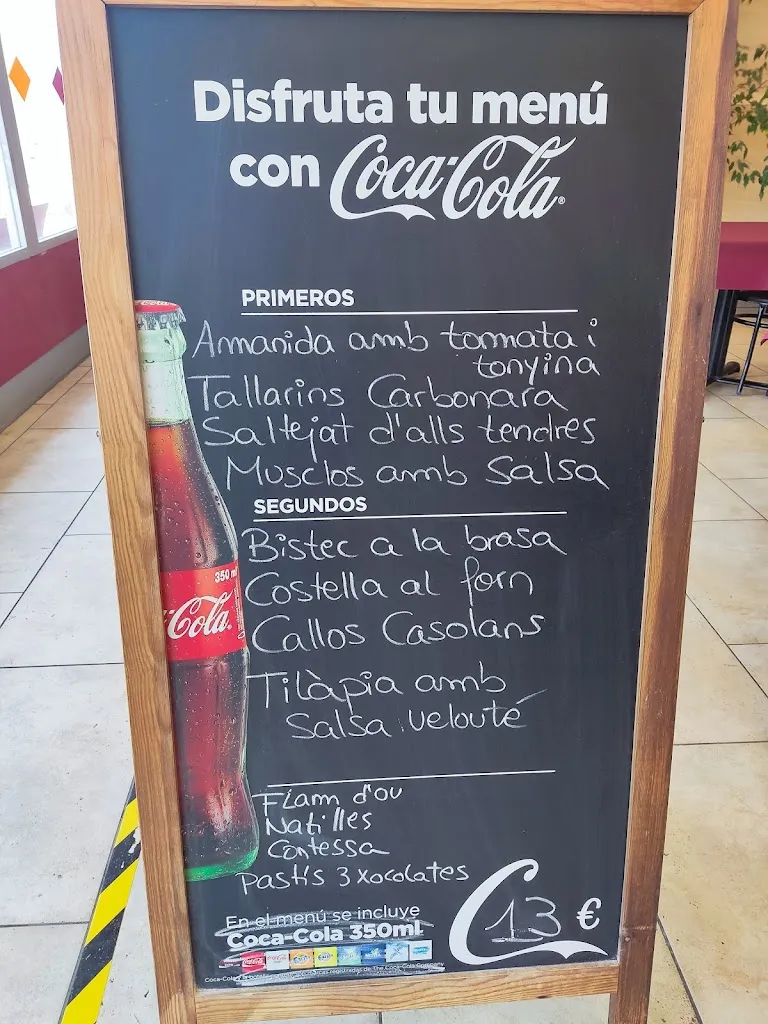 Disfruta tu menú
con Coca-Cola®
PRIMEROS
Amanida amb tomata i
tonyina
Tallarins Carbonara
Saltejat d'alls tendres
Musclos amb Salsa
SEGUNDOS
Bistec a la brasa
Costella al forn
350 ml
Coca-Cola.
Callos Casolans
Tilàpia amb
Salsa velouté
Flam d'ou
Natilles
Contessa
Pastís 3 xocolates
En el menú se incluye
Coca-Cola 350ml
13 €